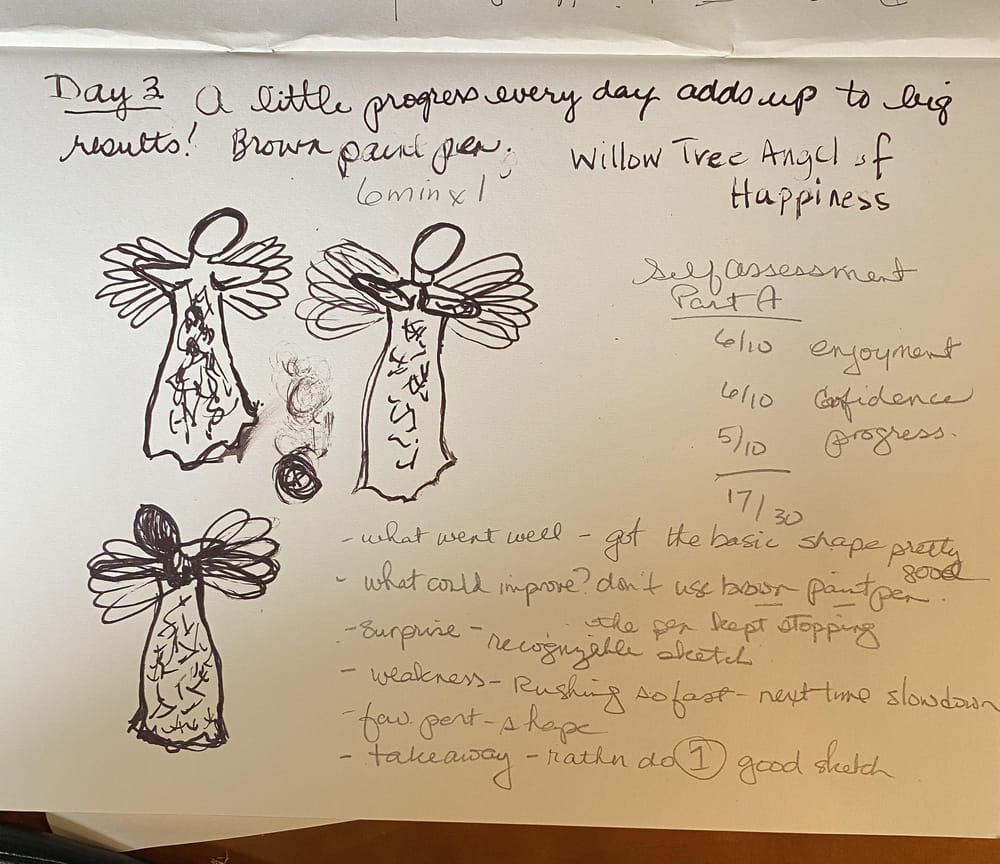 Day 3 A little progress every day adds up to big
results! Brown paint pen.
6 min x 1
Willow Tree Angel of
Happiness
Self assessment
Part A
6/10 enjoyment
6/10 Cofidence
5/10 progress.
17/30
- what went well - got the basic shape pretty
good
- what could improve? don't use brown paint pen.
the pen kept stopping
- Surprise - recognizable sketch
- weakness - Rushing so fast - next time slow down
- fav. part - shape
- takeaway - rather do 1 good sketch